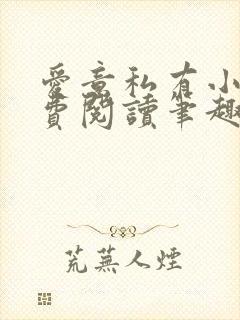 愛意私有小
費閱讀筆趣
荒蕪人煙